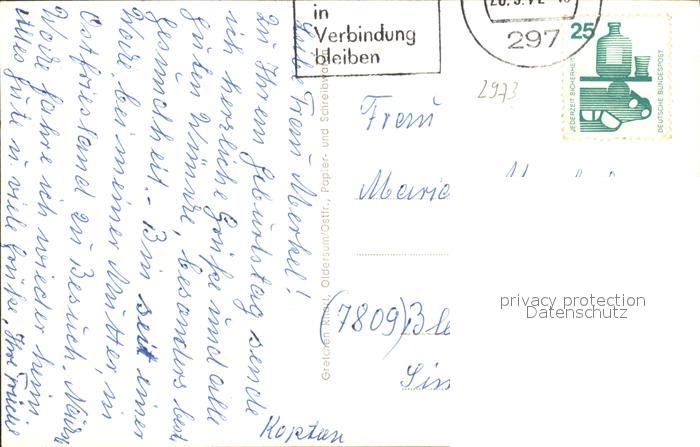 in
Verbindung
bleiben
297
25
JEDERZEIT SICHERHEIT
DEUTSCHE BUNDESPOST
2973
Liebe Frau Merkel!
Zu Ihrem Geburtstag sende
ich herzliche Grüße und alle
guten Wünsche, besonders beste
Gesundheit. - Bin seit einer
Woche bei meiner Mutter, in
Ostfriesland zu Besuch. Nächste
Woche fahre ich wieder heim
Alles Gute u. viele Grüße, Ihre
Gretchen Oldersum/Ostfr., Papier- und Schreibwaren
Frau
Maria
(7809) Ble
Sim
privacy protection
Datenschutz